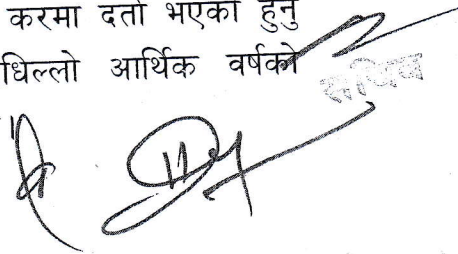 करमा दर्ता भएको हुनु
घिल्लो आर्थिक वर्षको
सचिव